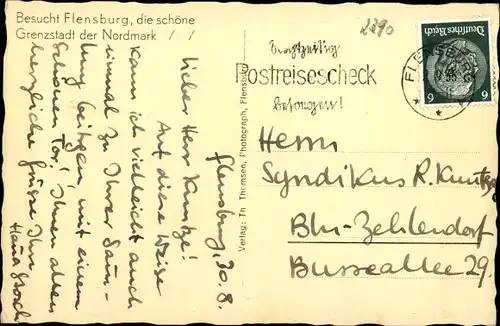 Besucht Flensburg, die schöne
Grenzstadt der Nordmark / /
2390
Flensburg, 30.8.
Lieber Herr Kuntze!
Auf diese Weise
kann ich vielleicht auch
einmal zu Ihrer Samm-
lung beitragen, mit einem
schönen Tor! Ihnen allen
herzliche Grüsse Ihre
Hana
Verlag: Th. Thomsen, Photograph, Flensburg
Rechtzeitig
Postreisescheck
besorgen!
FLENSBURG
Deutsches Reich
6 6
Herrn
Syndikus R. Kuntze
Bln-Zehlendorf
Busseallee 29.